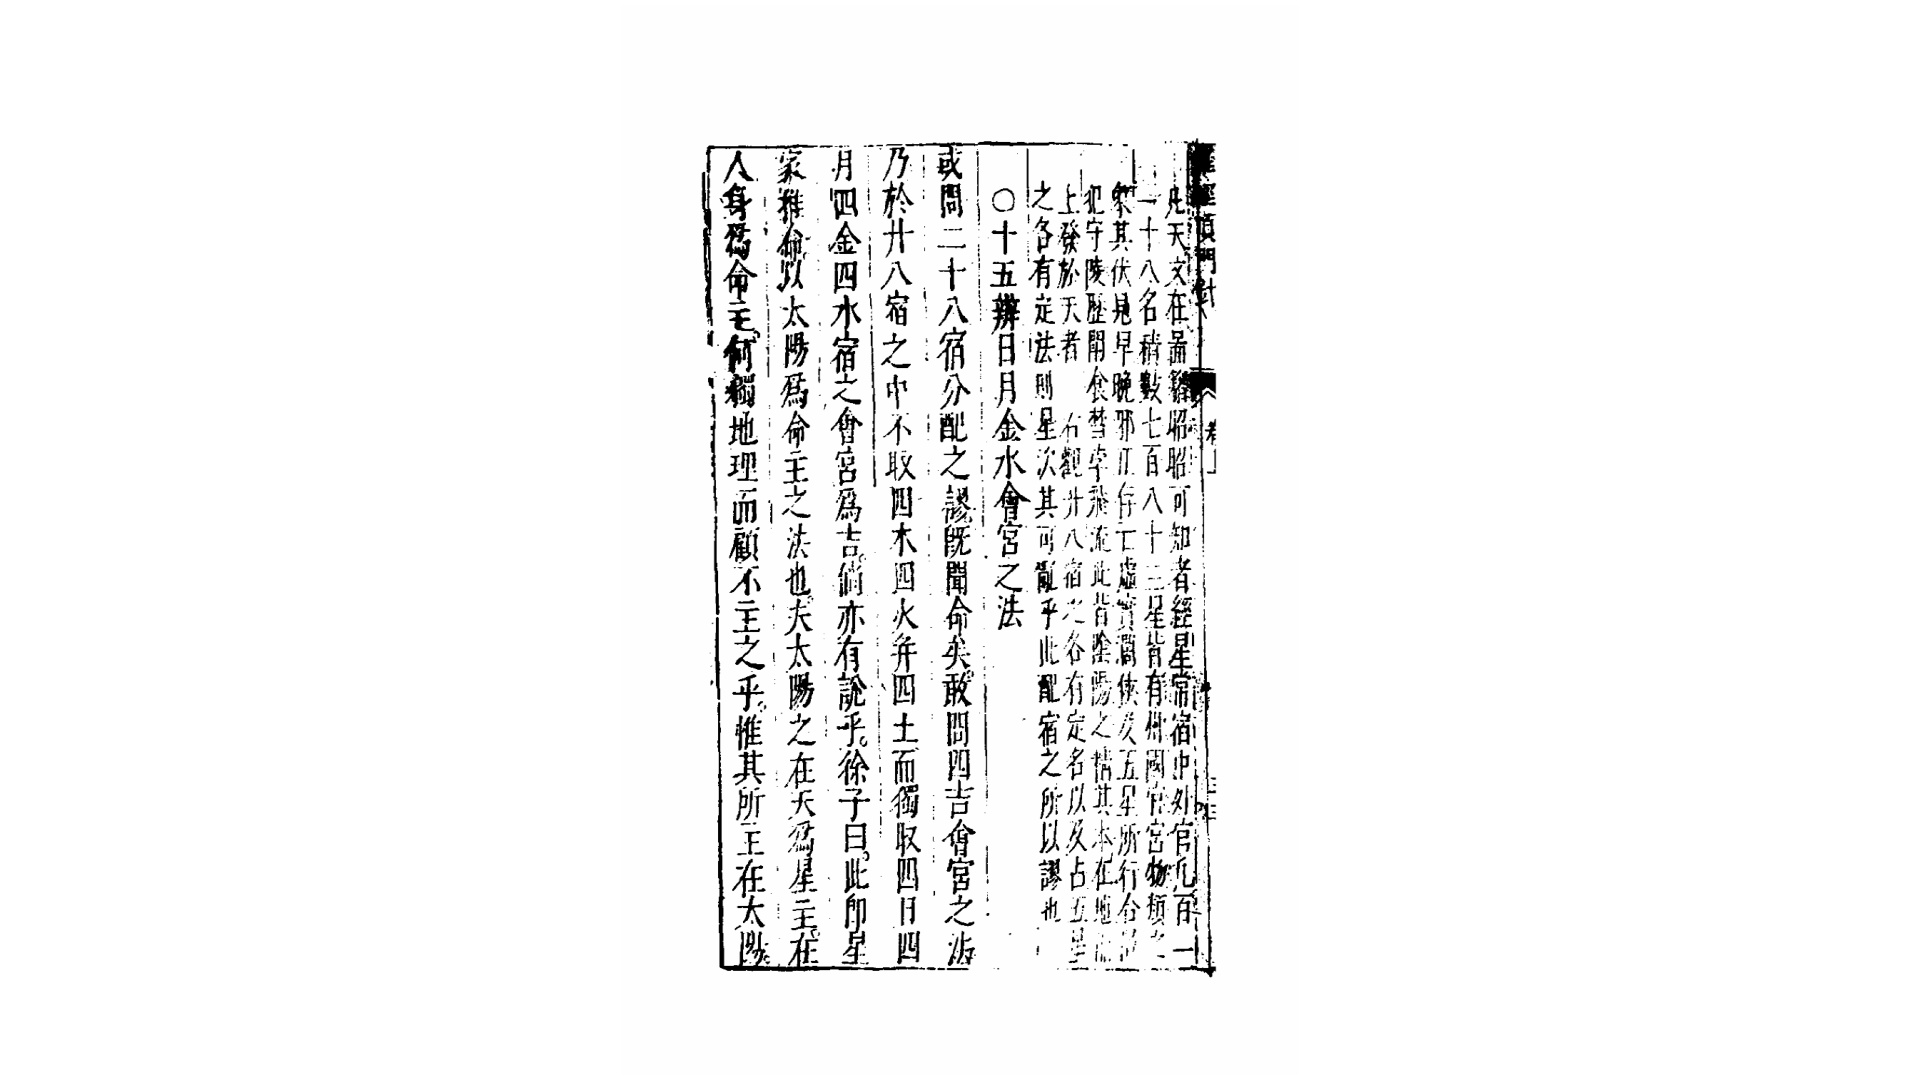 羅經頂門針 卷上
凡天文在圖籍昭昭可知者經星常宿中外官凡百一
一十八名積數七百八十三星皆有州國官宮物類之
象其伏見早晚邪正存亡虛實濶俠及五星所行合散
犯守陵歷鬭食彗孛飛流此皆陰陽之精其本在地而
上發於天者 右觀廾八宿之各有定名以及占五星
之各有定法則星次其可亂乎此配宿之所以謬也
○十五辨日月金水會宮之法
或問二十八宿分配之謬既聞命矣敢問四吉會宮之法
乃於廾八宿之中不取四木四火并四土而獨取四日四
月四金四水宿之會宮爲吉倘亦有說乎徐子曰此即星
家推命以太陽爲命主之法也夫太陽之在天爲星主在
人身爲命主何獨地理而顧不主之乎惟其所主在太陽